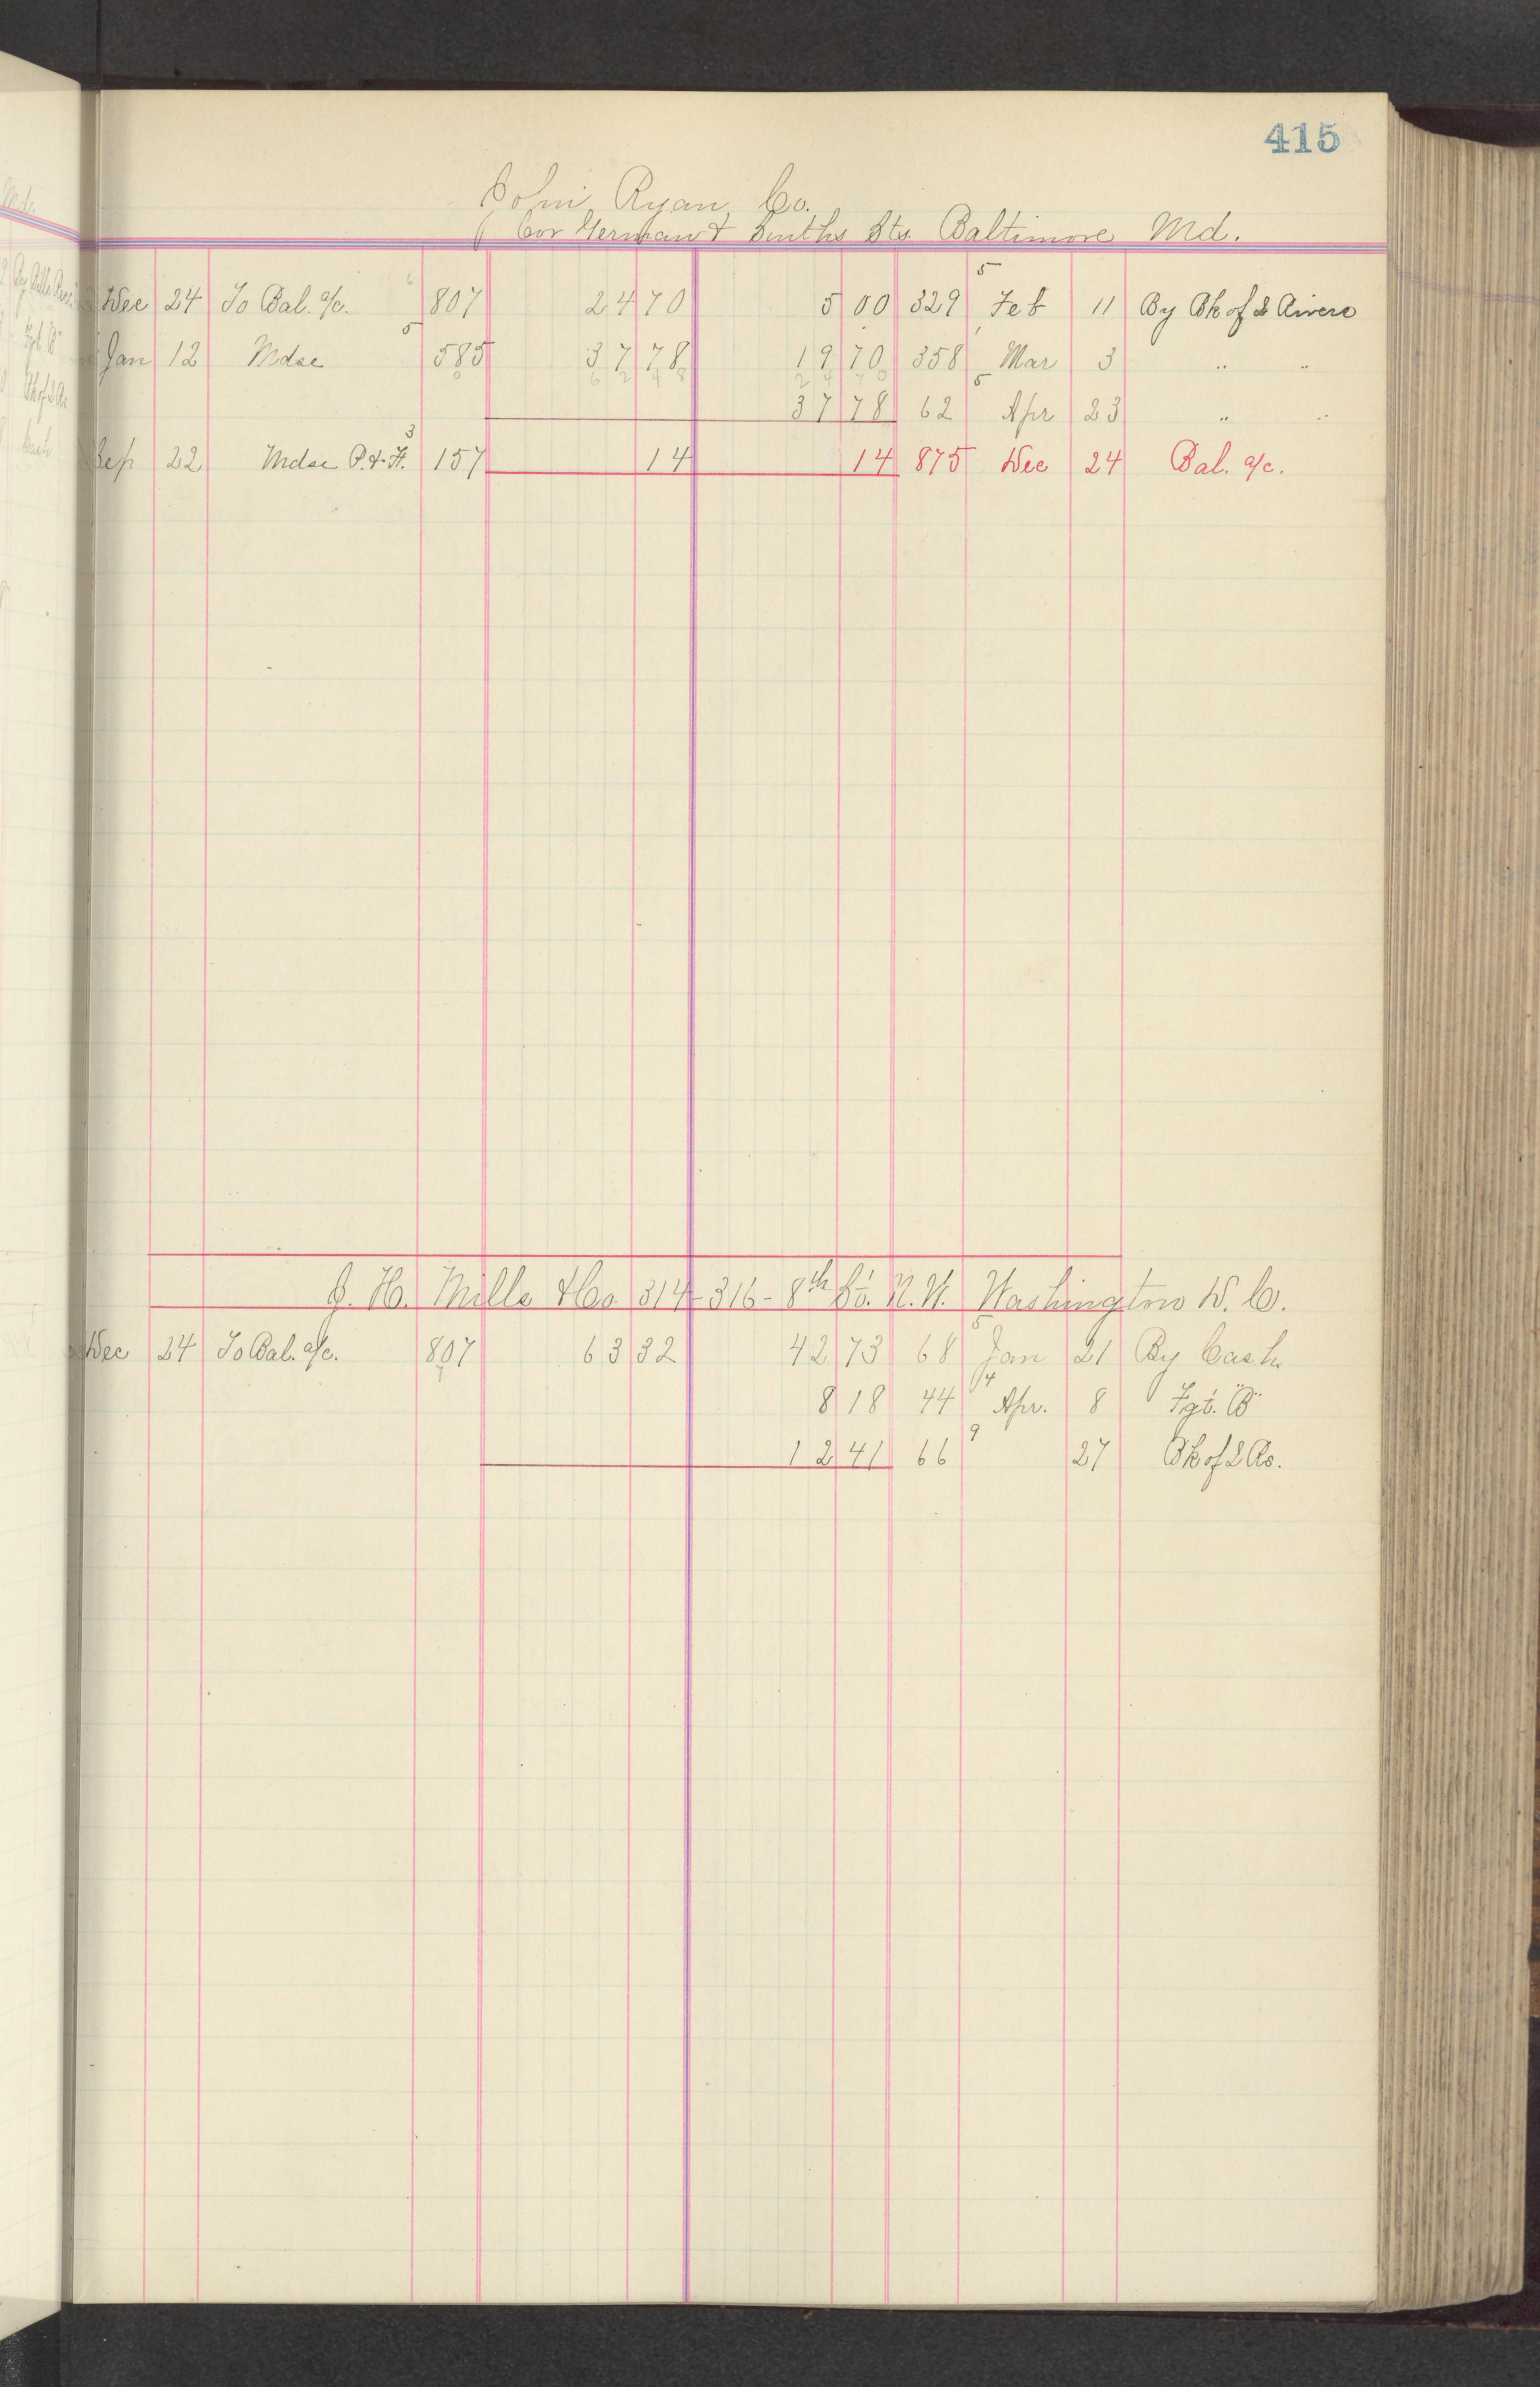 415
John Ryan Co.
Cor German & Smiths Sts. Baltimore Md.
Dec 24 To Bal. a/c. 807 24 70 5 00 329 5 Feb 11 By Bk of 2 Rivers
Jan 12 Mdse 5 585 37 78 19 70 358 Mar 3 " "
62 48 24 70
37 78 62 5 Apr 23 " "
Sep 22 Mdse P. & F. 3 157 14 14 875 Dec 24 Bal. a/c.
J. H. Mills & Co 314-316-8th St. N.W. Washington D.C.
Dec 24 To Bal. a/c. 807 63 32 42 73 68 Jan 21 By Cash
8 18 44 4 Apr. 8 Fgt. "B"
12 41 66 9 27 Bk of 2 Rs.